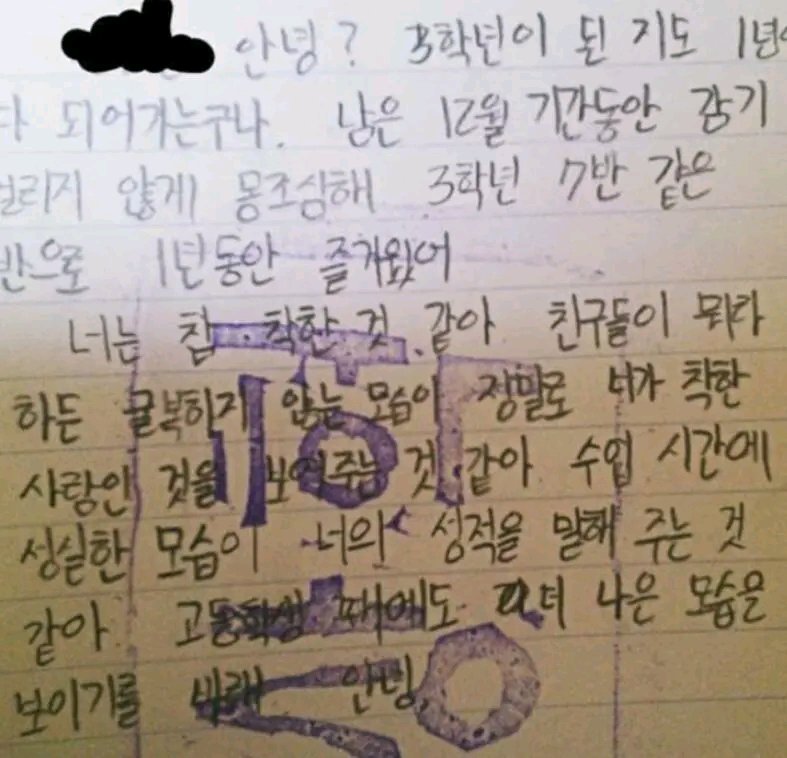 안녕? 3학년이 된 지도 1년이
다 되어가는구나. 남은 12월 기간동안 감기
걸리지 않게 몽조심해 3학년 7반 같은
반으로 1년동안 즐거웠어
너는 참 착한 것 같아 친구들이 뭐라
하든 굴복하지 않는 모습이 정말로 너가 착한
사람인 것을 보여주는 것 같아 수업 시간에
성실한 모습이 너의 성적을 말해 주는 것
같아 고등학생 때에도 더 나은 모습을
보이기를 바래 안녕,